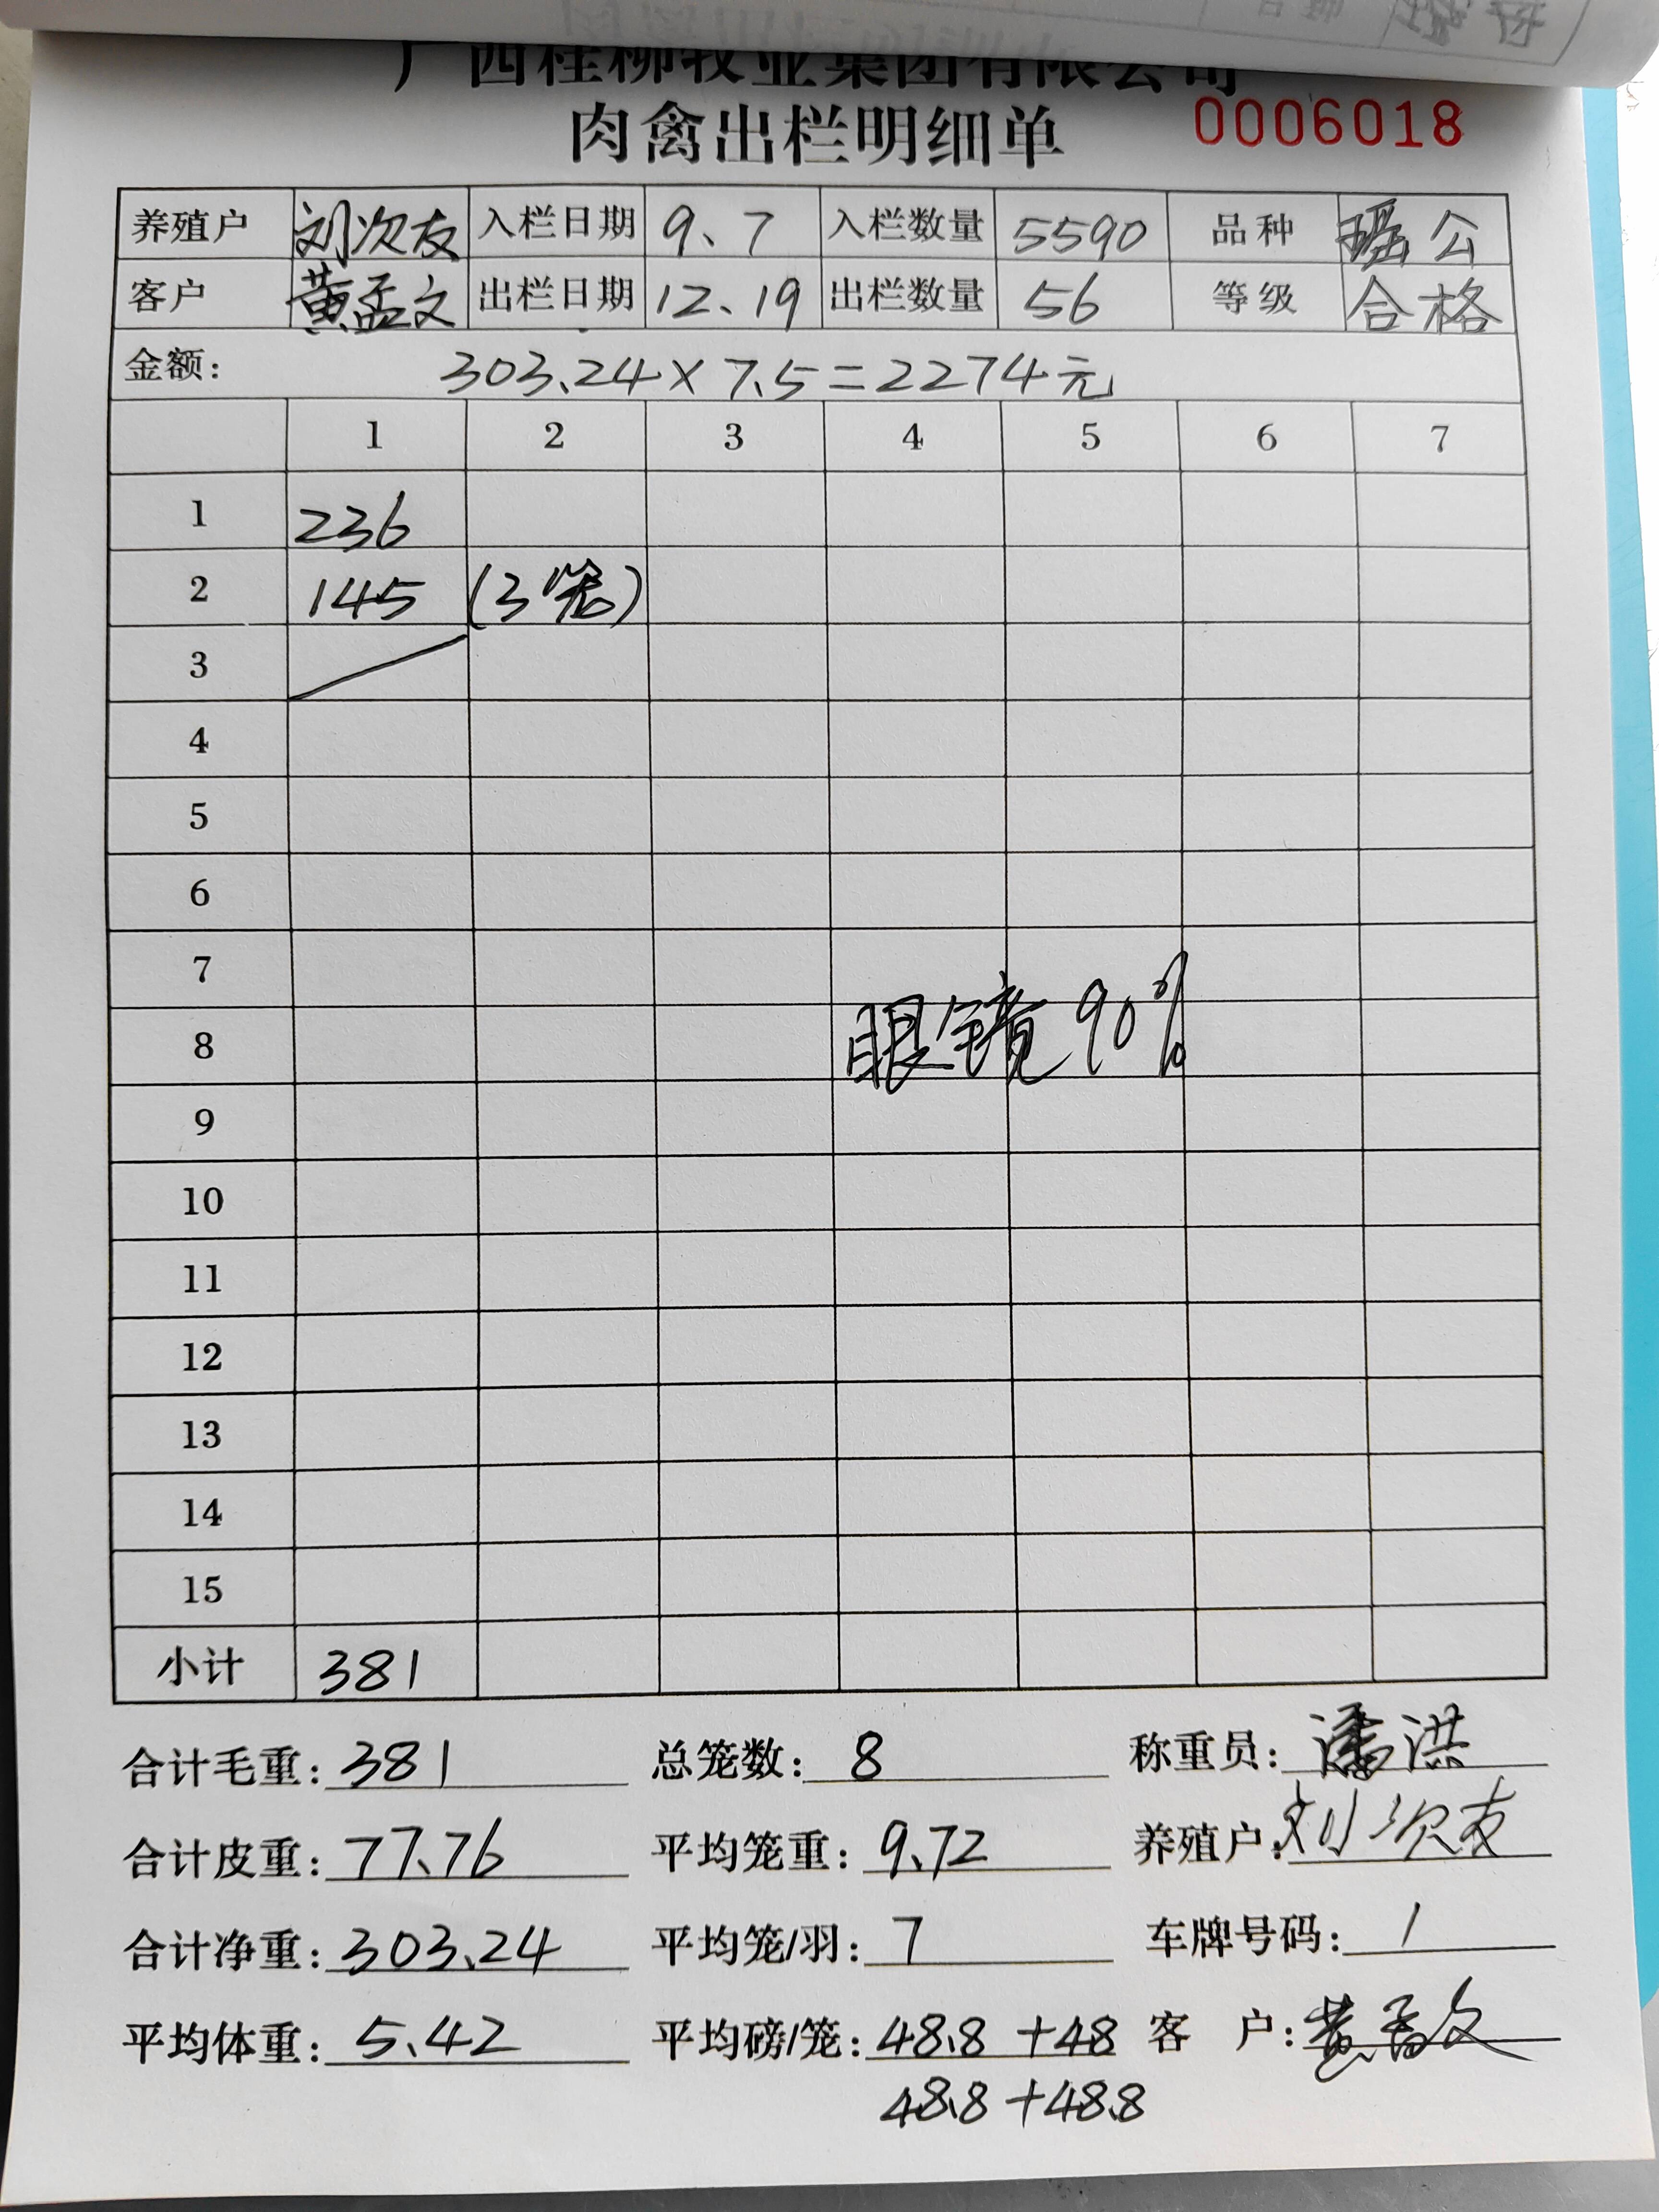 广西桂柳牧业集团有限公司
肉禽出栏明细单 0006018
养殖户 刘次友 入栏日期 9、7 入栏数量 5590 品种 瑶公
客户 黄孟文 出栏日期 12、19 出栏数量 56 等级 合格
金额: 303.24×7.5=2274元
1 2 3 4 5 6 7
1 236
2 145 (3笼)
3
4
5
6
7
8 眼镜90%
9
10
11
12
13
14
15
小计 381
合计毛重: 381 总笼数: 8 称重员: 潘洪
合计皮重: 77.76 平均笼重: 9.72 养殖户: 刘次友
合计净重: 303.24 平均笼/羽: 7 车牌号码: /
平均体重: 5.42 平均磅/笼: 48.8+48 客 户: 黄孟文
48.8+48.8